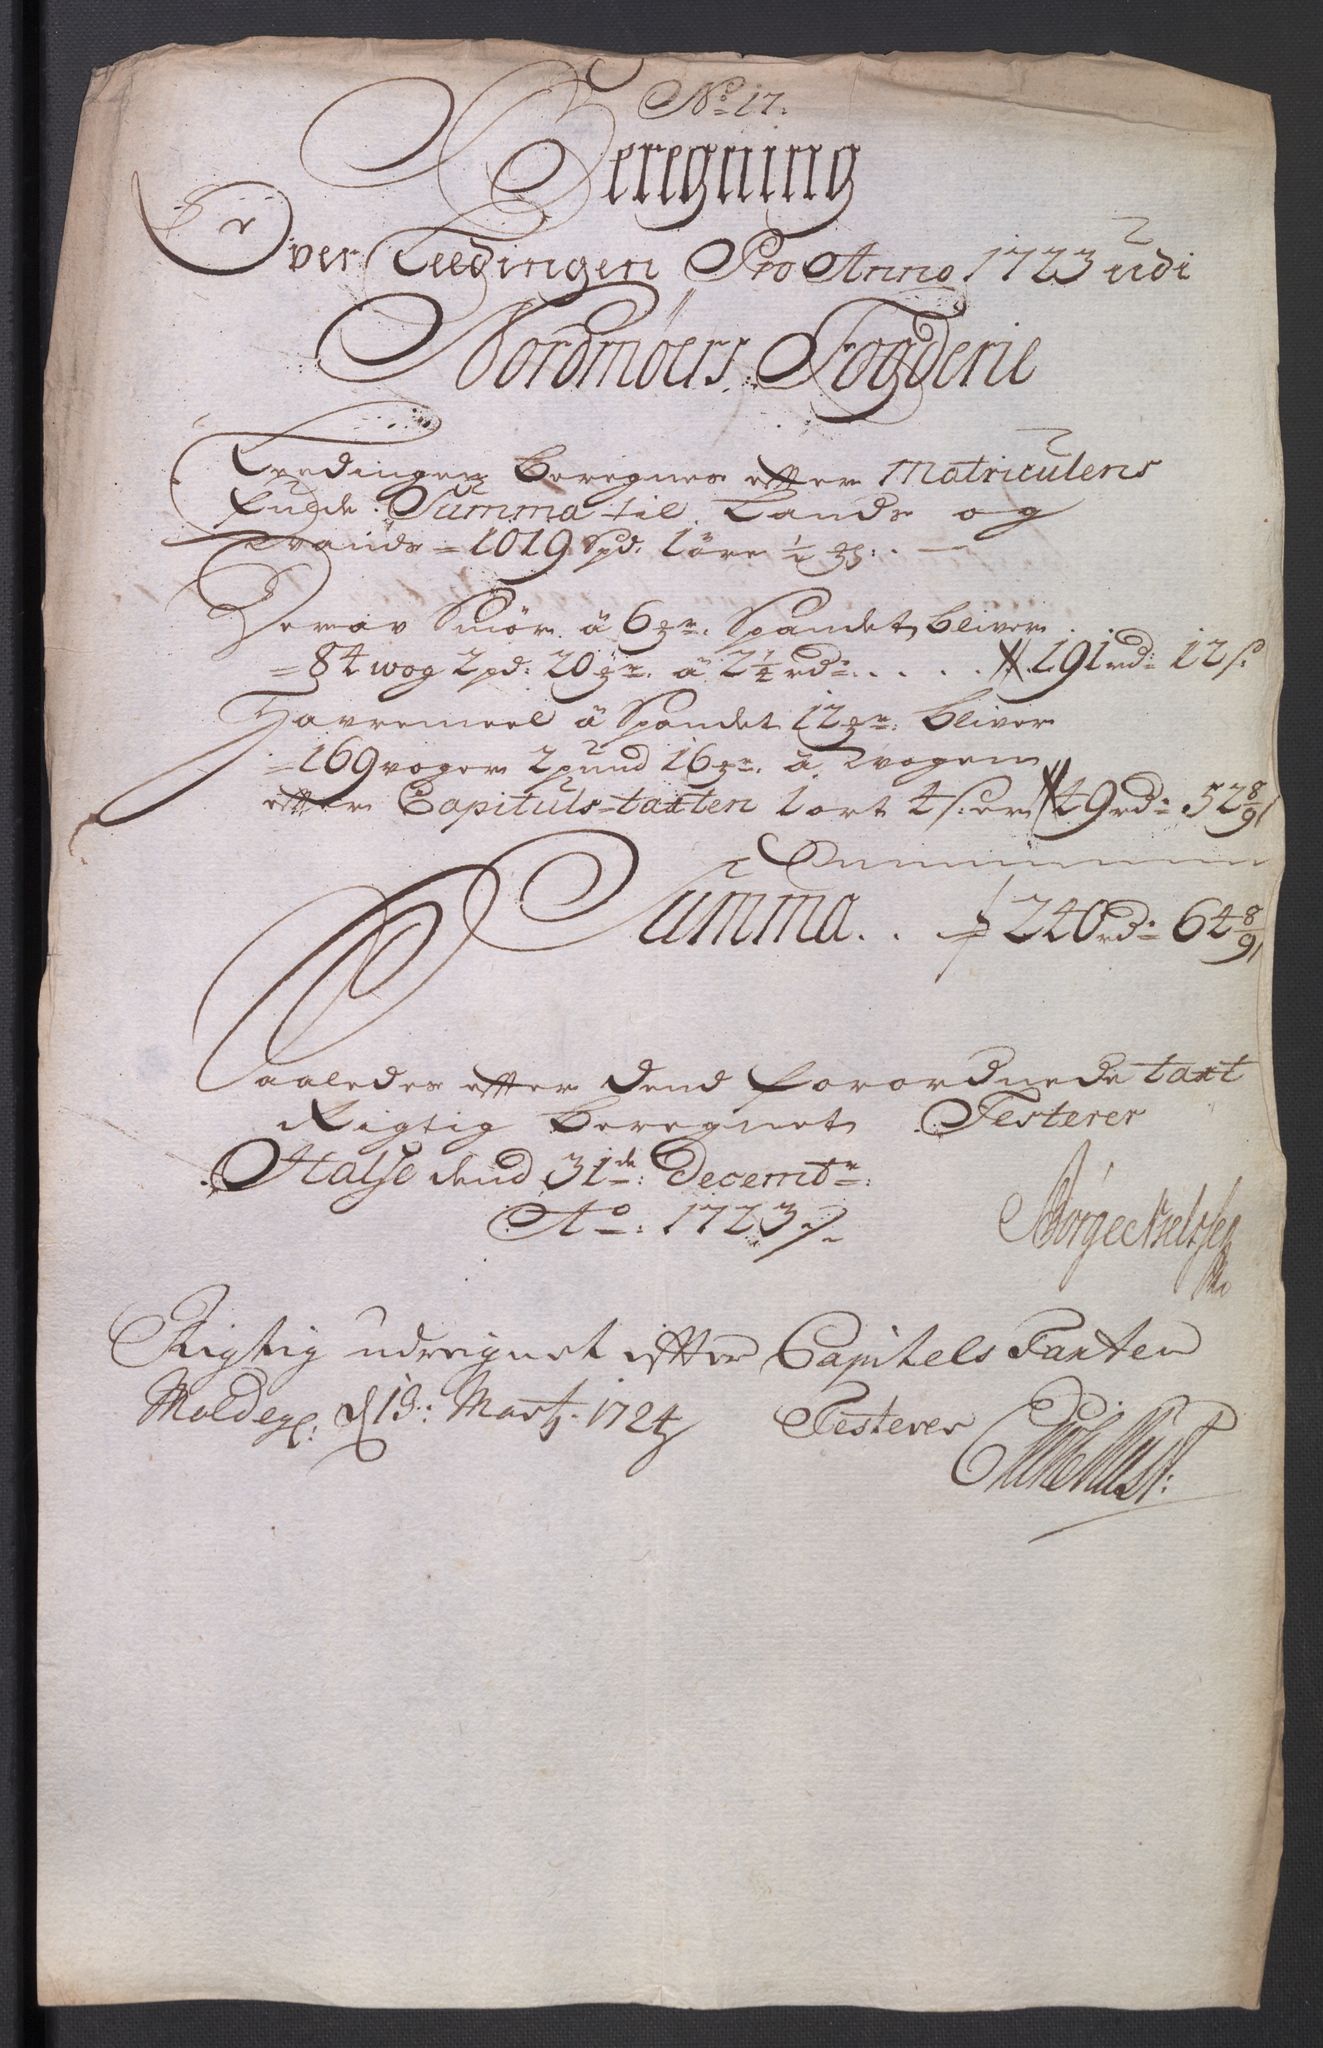 No 17.
Beregning
Over Leedingen Pro Anno 1723 udi
Nordmöers Fogderie
Leedingen beregnes efter Matriculens
fulde Summa til Lands og
Vands = 1019 Spd: 1 öre ½
Derav Smör â 6 Spandet bliver
= 84 wog 2 pd: 20 â 2¼ rd: . . . . 191 rd: 12 s.
Havremeel â Spandet 12 bliver
= 169 voger 2 pund 16 â Vogen
efter Capituls-taxten 1 ort 4 s: er 49 rd: 52 8/9
Summa . . 240 rd: 64 8/9
Saaledes efter dend forordnede taxt
Rigtig beregnet Testerer
Halse dend 31de: Decembr:
Ao: 1723
Börge Nielssen
Rigtig udreignet efter Capitels Taxten
Molde d 19: Marty 1724 Testerer